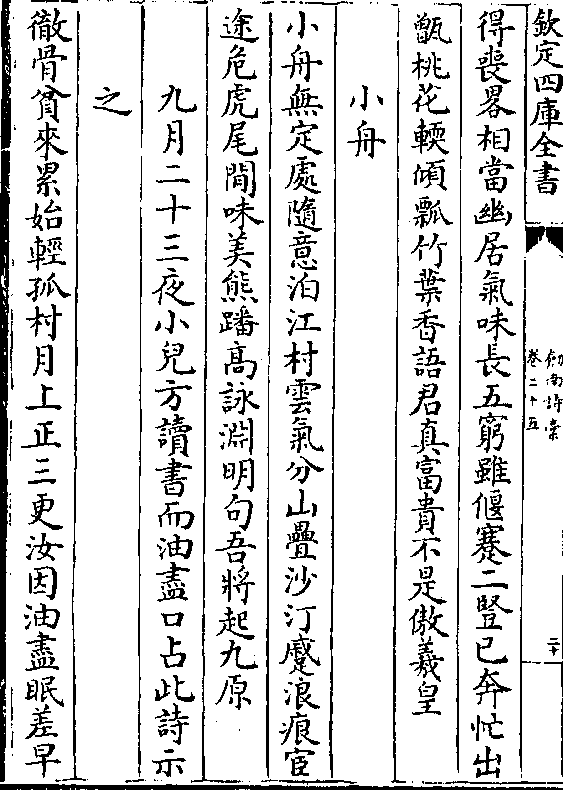 欽定四庫全書
劍南詩稾
卷二十五
二十
得喪畧相當幽居氣味長五窮雖偃蹇二豎已奔忙出
甑桃花輭傾瓢竹葉香語君真富貴不是傲羲皇
小舟
小舟無定處隨意泊江村雲氣分山疊沙汀蹙浪痕宦
途危虎尾閒味美熊蹯高詠淵明句吾將起九原
九月二十三夜小兒方讀書而油盡口占此詩示
之
徹骨貧來累始輕孤村月上正三更汝因油盡眠差早